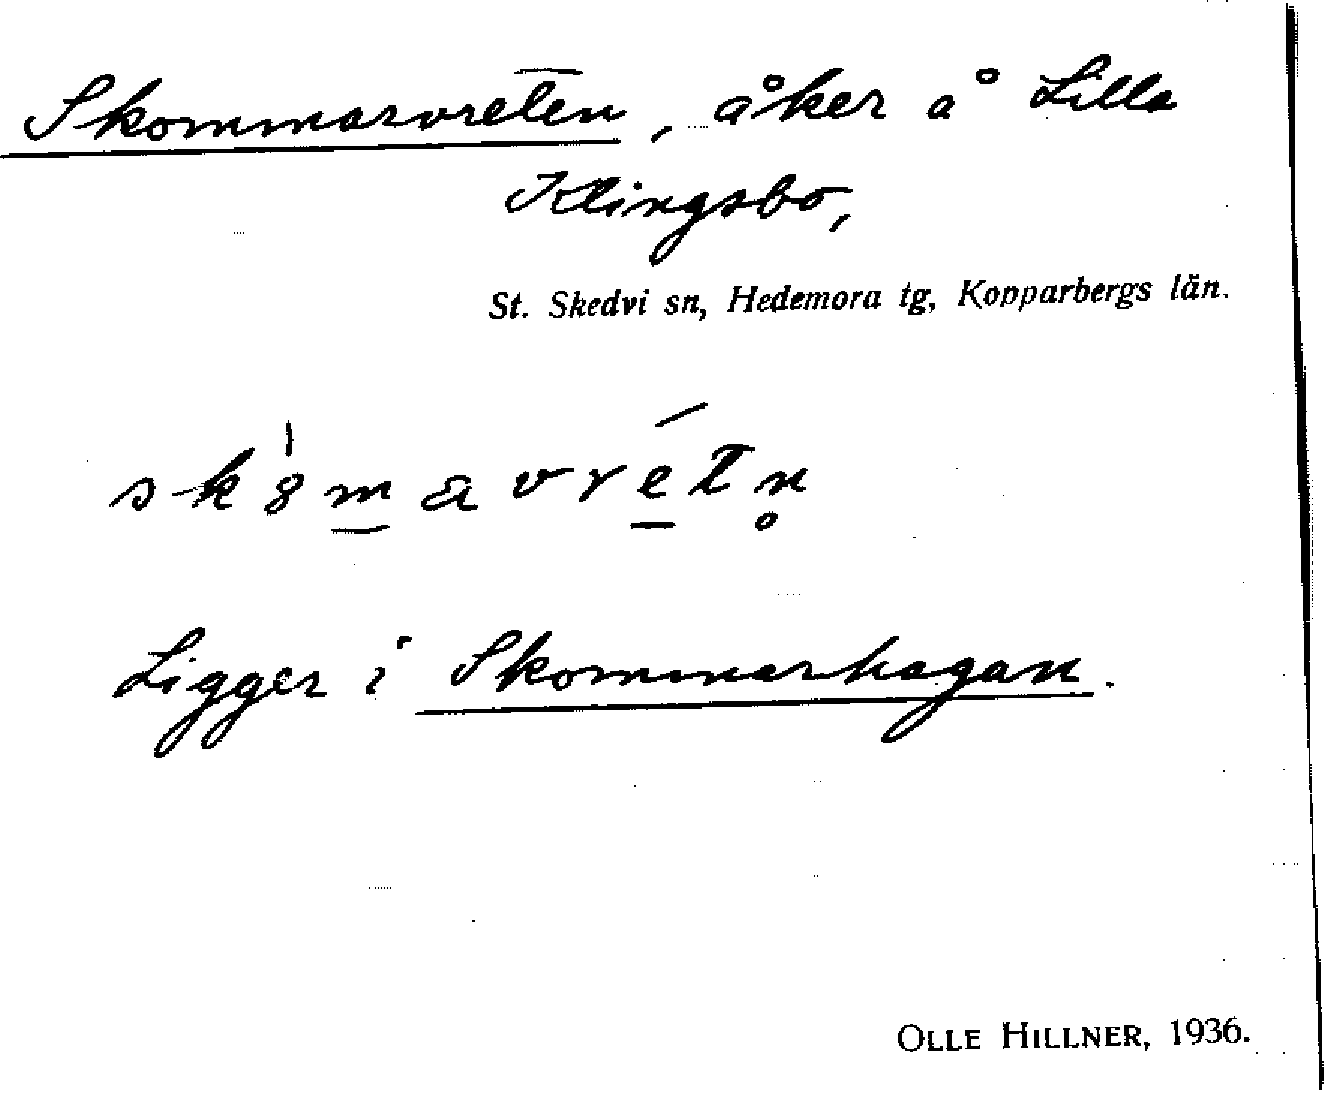 Skommarvreten, åker å Lilla
Klingsbo,
St. Skedvi sn, Hedemora tg, Kopparbergs län.
sk8̀m̲avré̲tn̥
Ligger i Skommarhagan.
OLLE HILLNER, 1936.